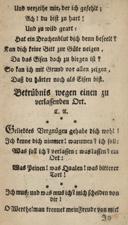 Und verzeihe mir, der ich gefehlt;
Ach! du bist zu hart;
Und zu wild geart:
Hat ein Drachenblut dich denn beseelt?
Kan dich keine Bitt zur Güte neigen,
Da das Eisen doch zu biegen ist?
So kan ich mit Grund vor allen zeigen,
Daß du härter noch als Eisen bist.
Betrübnis wegen einen zu
verlassenden Ort.
Geliebtes Vergnügen gehabe dich wohl!
Ich kenne dich nimmer! warum? ich soll:
Was soll ich? verlassen; was lassen? den
Ort:
Was Peinen! was Qualen! was bitterer
Tort!
Ich muß; und was muß ich? mich scheiden von
dir!
O Werthe! man trennet mein Freude von mir!